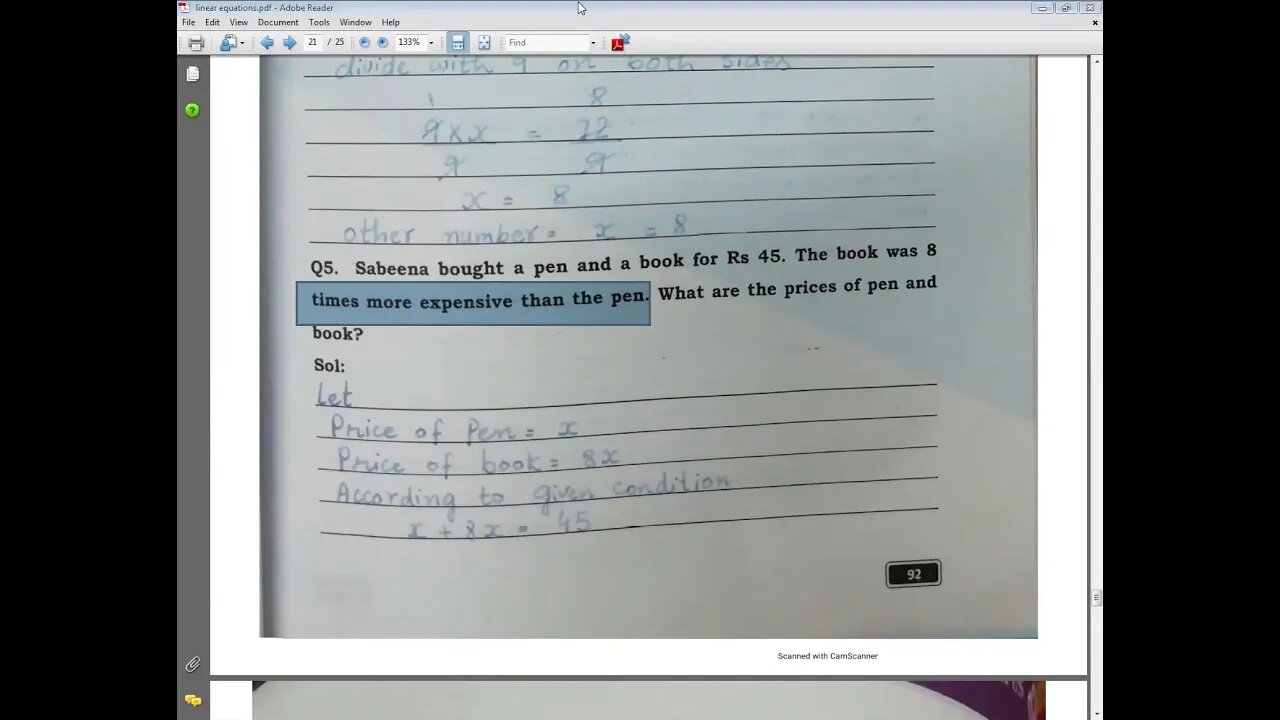 linear equations.pdf - Adobe Reader
File Edit View Document Tools Window Help
21 / 25 133% Find
divide with 9 on both sides
1 8
9 × x = 72
9 9
x = 8
other number = x = 8
Q5. Sabeena bought a pen and a book for Rs 45. The book was 8
times more expensive than the pen. What are the prices of pen and
book?
Sol:
Let
Price of Pen = x
Price of book = 8x
According to given condition
x + 8x = 45
92
Scanned with CamScanner